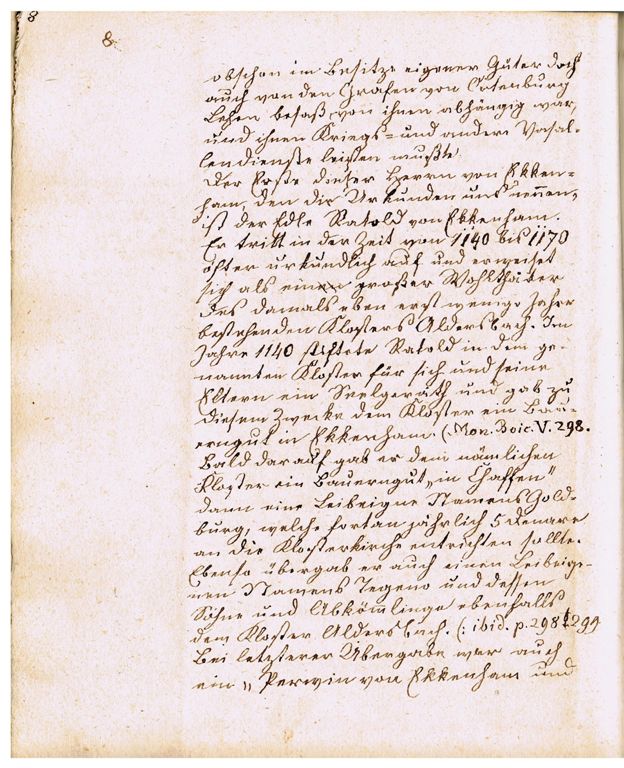 8
8.
obschon im Besitze eigener Güter doch
auch von den Grafen von Ortenburg
Lehen besaß, von ihnen abhängig war,
und ihnen Kriegs- und andere Vasal-
lendienste leisten mußte.
Der Erste dieser Herrn von Ekken-
ham, den die Urkunden uns nennen,
ist der Edle Ratold von Ekkenham.
Er tritt in der Zeit von 1140 bis 1170
öfter urkundlich auf und erweiset
sich als einen großer Wohlthäter
des damals eben erst wenige Jahre
bestehenden Klosters Aldersbach. Im
Jahre 1140 stiftete Ratold in dem ge-
nannten Kloster für sich und seine
Eltern ein Seelgeräth und gab zu
diesem Zwecke dem Kloster ein Bau-
erngut in Ekkenham. (Mon. Boic. V. 298.
Bald darauf gab er dem nämlichen
Kloster ein Bauerngut „in Chaffen"
dann eine Leibeigne Namens Gold-
burg, welche fortan jährlich 5 Denare
an die Klosterkirche entrichten sollte.
Ebenso übergab er auch einen Leibeige-
nen Namens Tegeno und dessen
Söhne und Abkömlinge ebenfalls
dem Kloster Aldersbach. (: ibid. p. 298 & 299
Bei letzterer Übergabe war auch
ein „Perwin von Ekkenham und